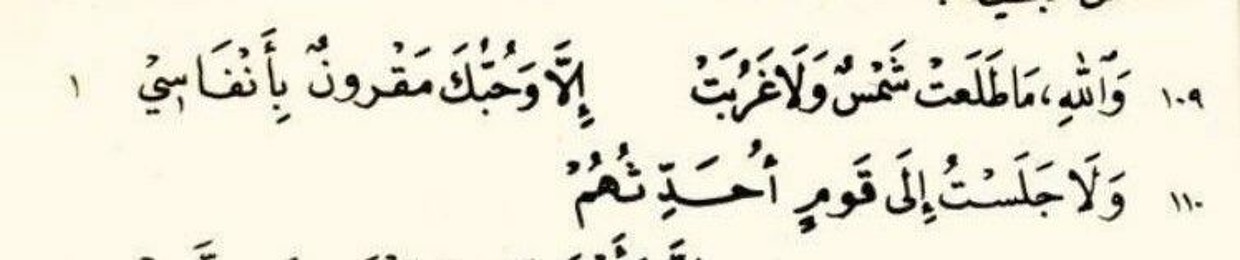 ١٠٩ وَٱللهِ، مَا طَلَعَتْ شَمْسٌ وَلَا غَرُبَتْ إِلَّا وَحُبُّكَ مَقْرونٌ بِأَنْفَاسِيْ ١
١١٠ وَلَا جَلَسْتُ إِلَى قَومٍ أُحَدِّثُهُمْ